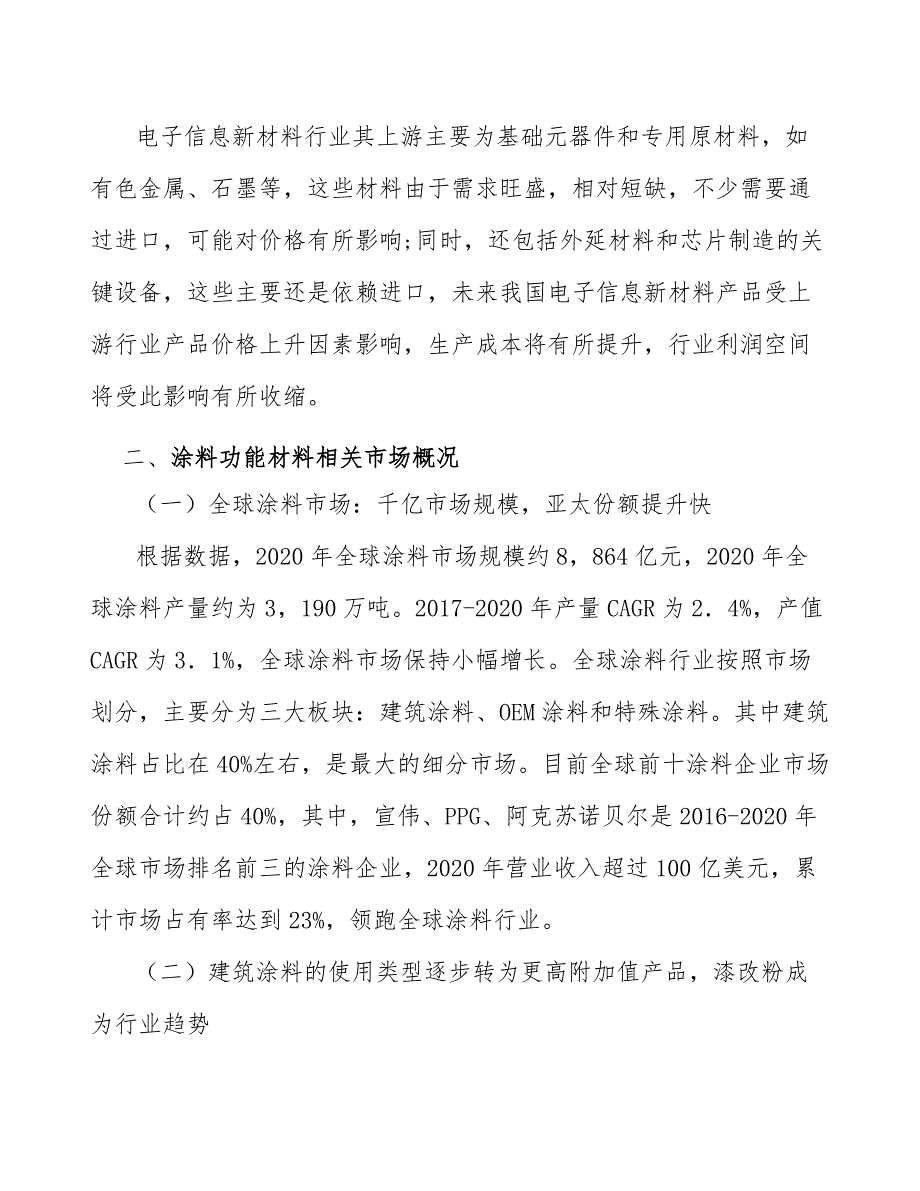 电子信息新材料行业其上游主要为基础元器件和专用原材料，如
有色金属、石墨等，这些材料由于需求旺盛，相对短缺，不少需要通
过进口，可能对价格有所影响;同时，还包括外延材料和芯片制造的关
键设备，这些主要还是依赖进口，未来我国电子信息新材料产品受上
游行业产品价格上升因素影响，生产成本将有所提升，行业利润空间
将受此影响有所收缩。
二、涂料功能材料相关市场概况
（一）全球涂料市场：千亿市场规模，亚太份额提升快
根据数据，2020 年全球涂料市场规模约 8，864 亿元，2020 年全
球涂料产量约为 3，190 万吨。2017-2020 年产量 CAGR 为 2．4%，产值
CAGR 为 3．1%，全球涂料市场保持小幅增长。全球涂料行业按照市场
划分，主要分为三大板块：建筑涂料、OEM 涂料和特殊涂料。其中建筑
涂料占比在 40%左右，是最大的细分市场。目前全球前十涂料企业市场
份额合计约占 40%，其中，宣伟、PPG、阿克苏诺贝尔是 2016-2020 年
全球市场排名前三的涂料企业，2020 年营业收入超过 100 亿美元，累
计市场占有率达到 23%，领跑全球涂料行业。
（二）建筑涂料的使用类型逐步转为更高附加值产品，漆改粉成
为行业趋势